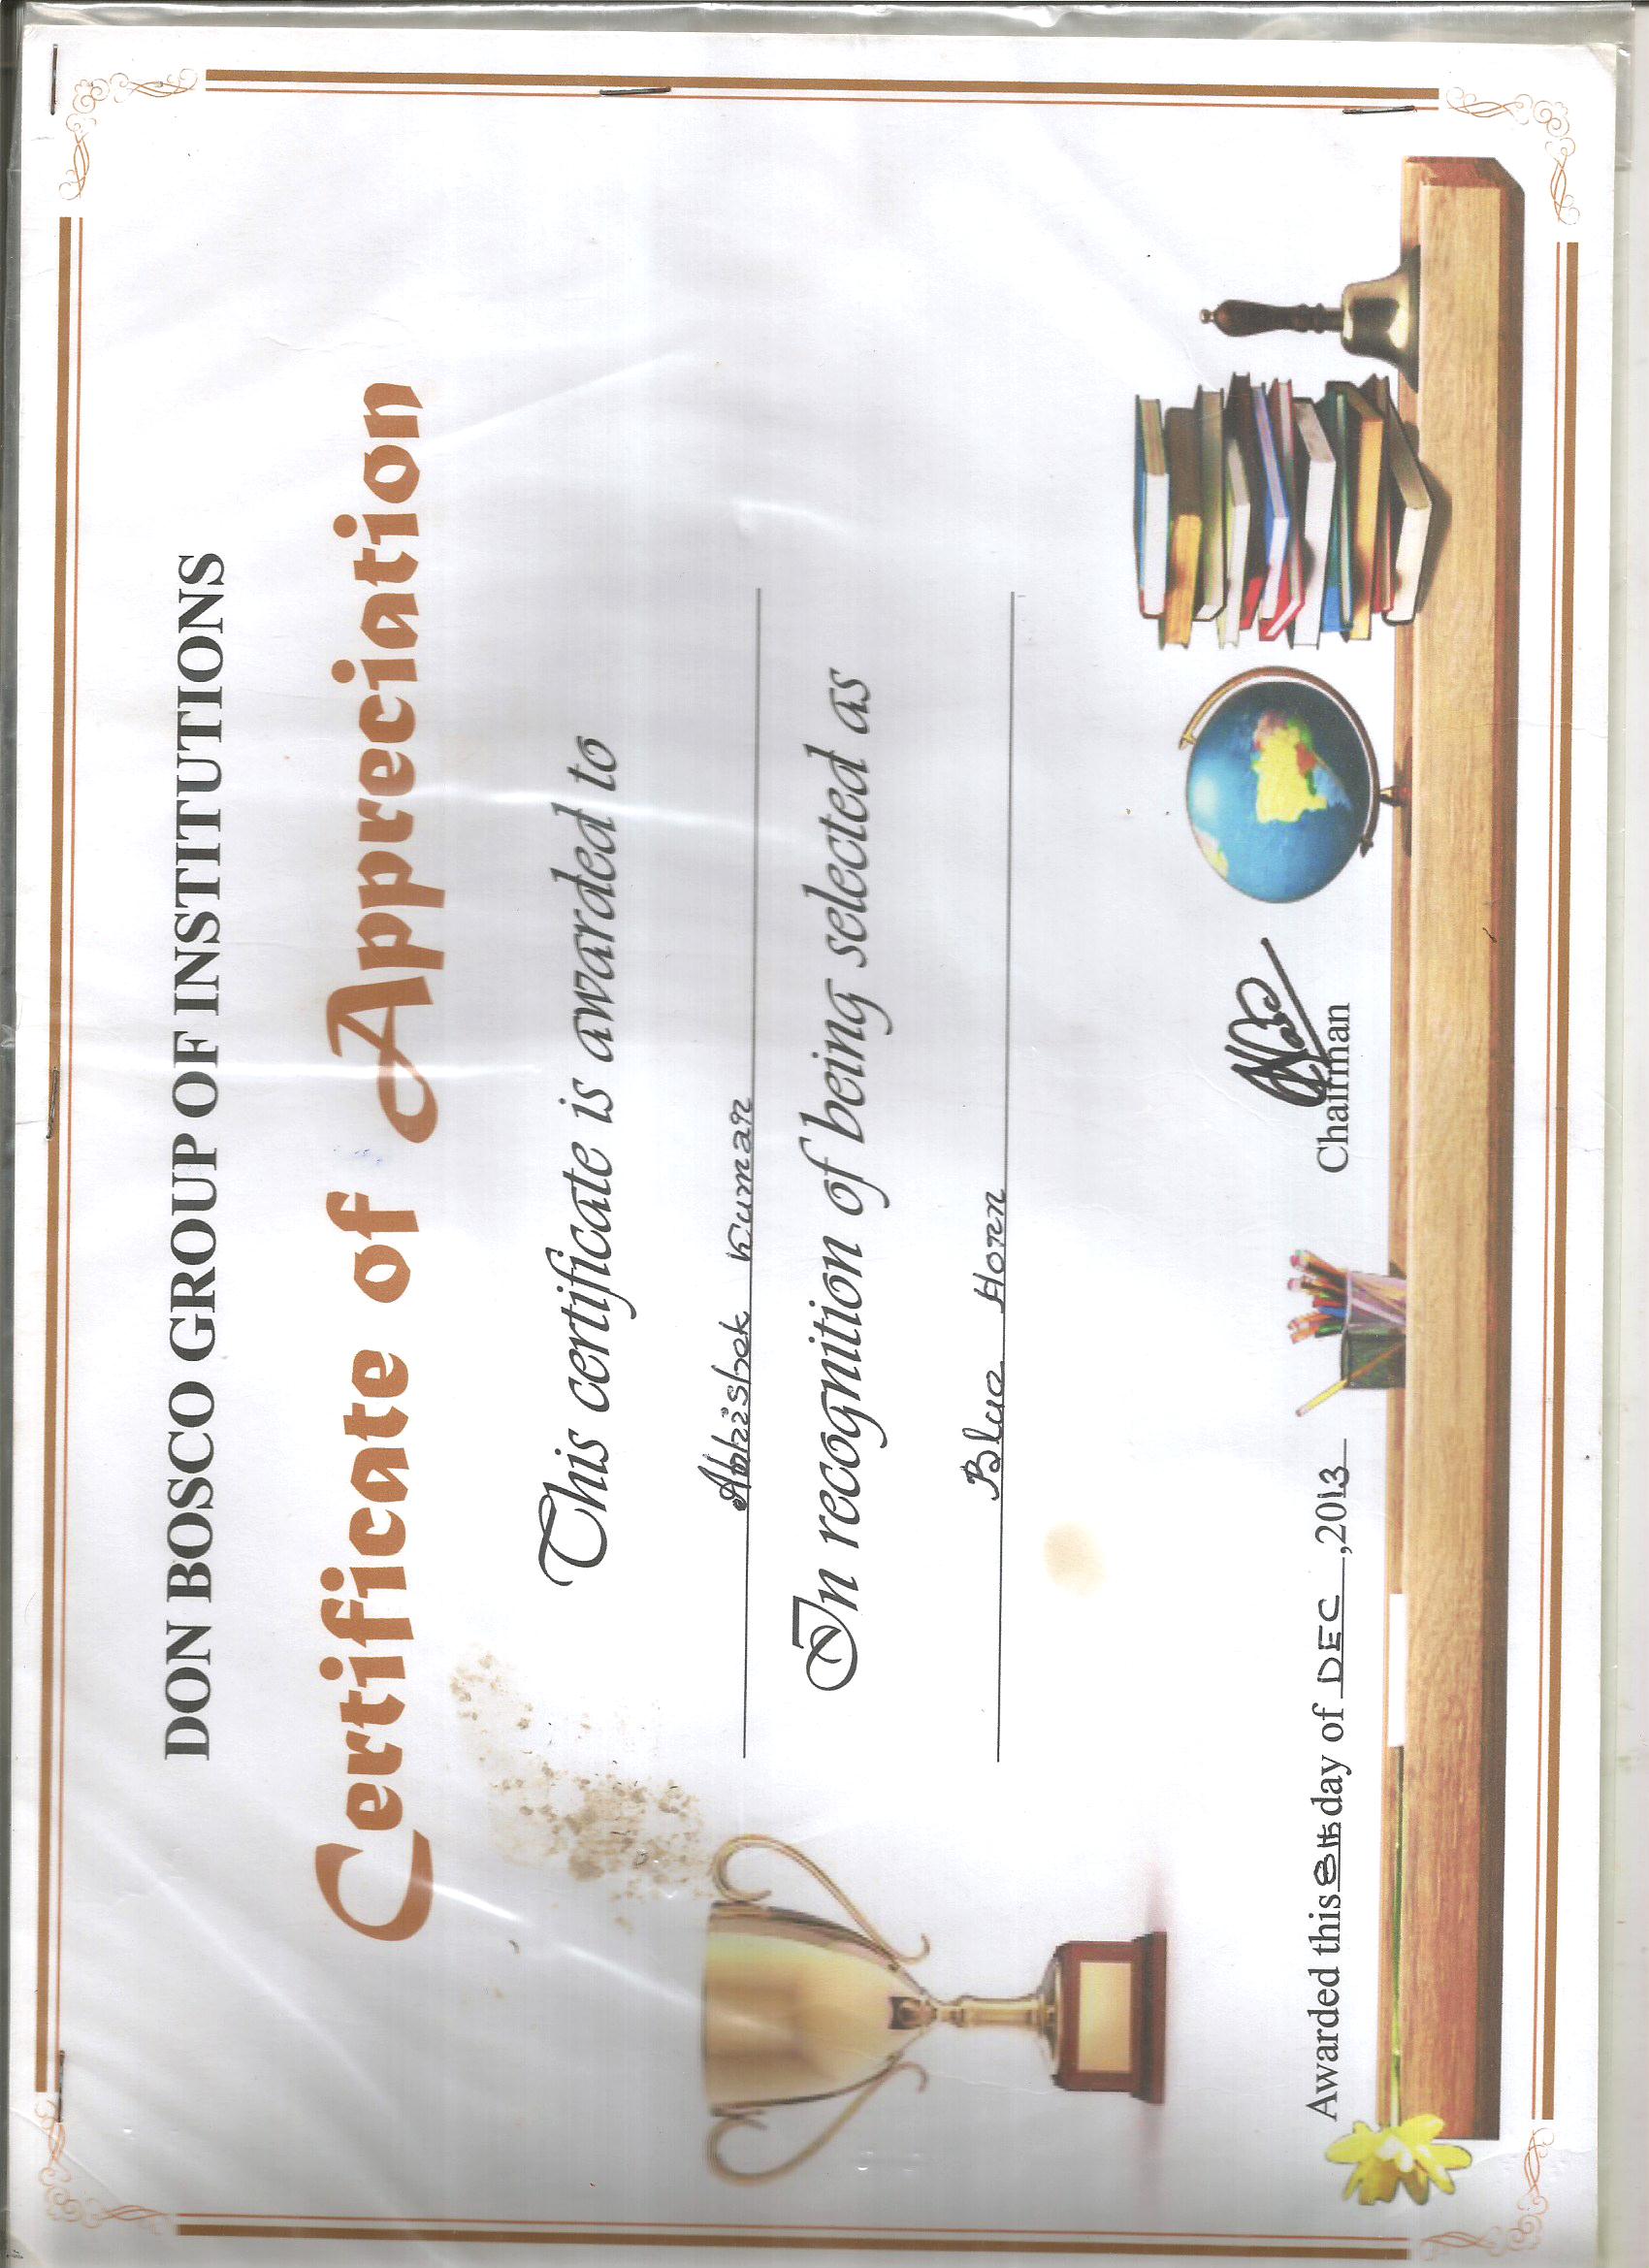 DON BOSCO GROUP OF INSTITUTIONS
Certificate of Appreciation
This certificate is awarded to
Abhishek Kumar
In recognition of being selected as
Blue Horn
Awarded this 8th day of DEC, 2013
Chairman